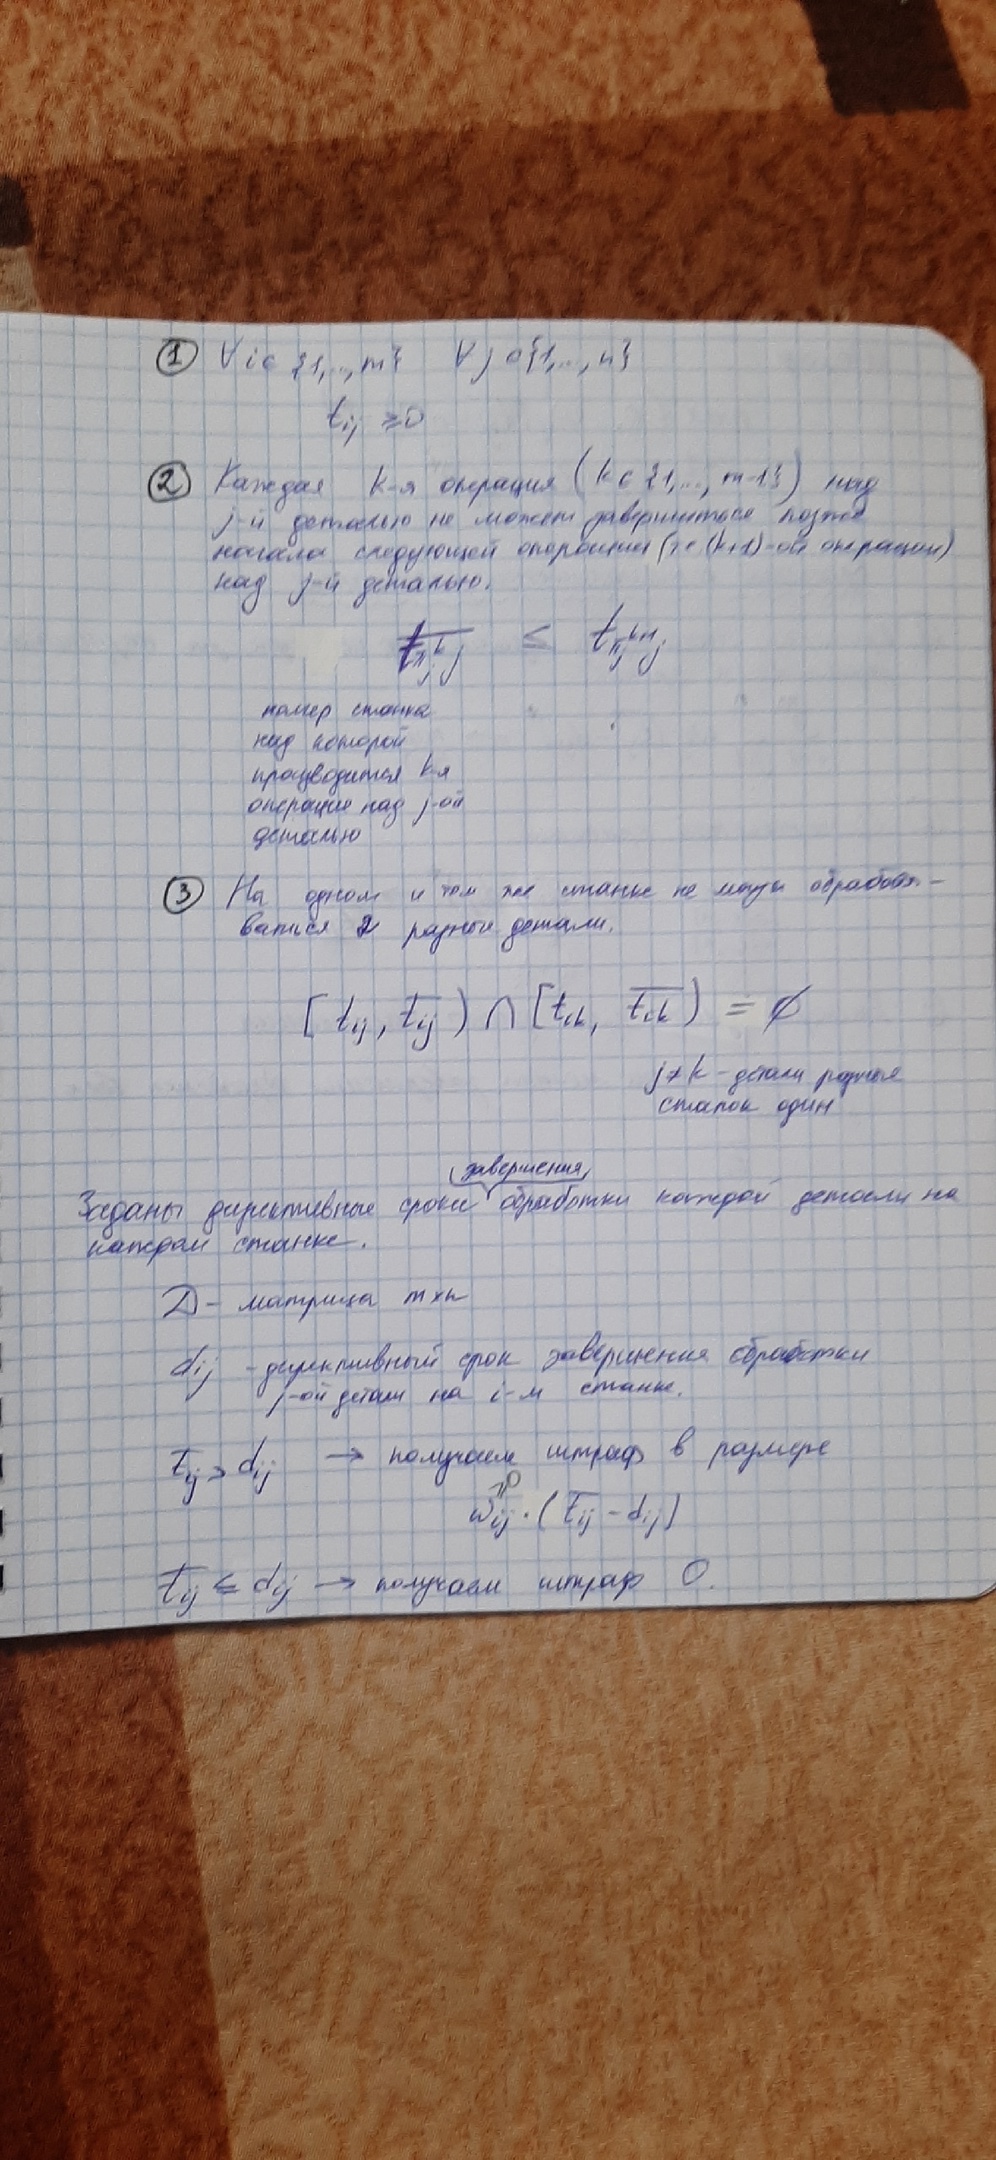 ① ∀ i ∈ {1,..., m} ∀ j ∈ {1,..., n}
t_ij ≥ 0
② Каждая k-я операция (k ∈ {1,..., m-1}) над
j-й деталью не может завершиться позже
начала следующей операции (те (k+1)-ой операции)
над j-й деталью.
t̅_{π_j^k j} ≤ t_{π_j^{k+1} j}
номер станка
над которой
производится k-я
операция над j-ой
деталью
③ На одном и том же станке не могут обрабаты-
ваться 2 разные детали.
[ t_ij, t̅_ij ) ∩ [ t_ik, t̅_ik ) = ∅
j ≠ k - детали разные
станок один
завершения
Заданы директивные сроки обработки каждой детали на
каждом станке.
D - матрица m×n
d_ij - директивный срок завершения обработки
j-ой детали на i-м станке.
t̅_ij > d_ij → получаем штраф в размере
≥0
w_ij · ( t̅_ij - d_ij )
t̅_ij ≤ d_ij → получаем штраф 0.